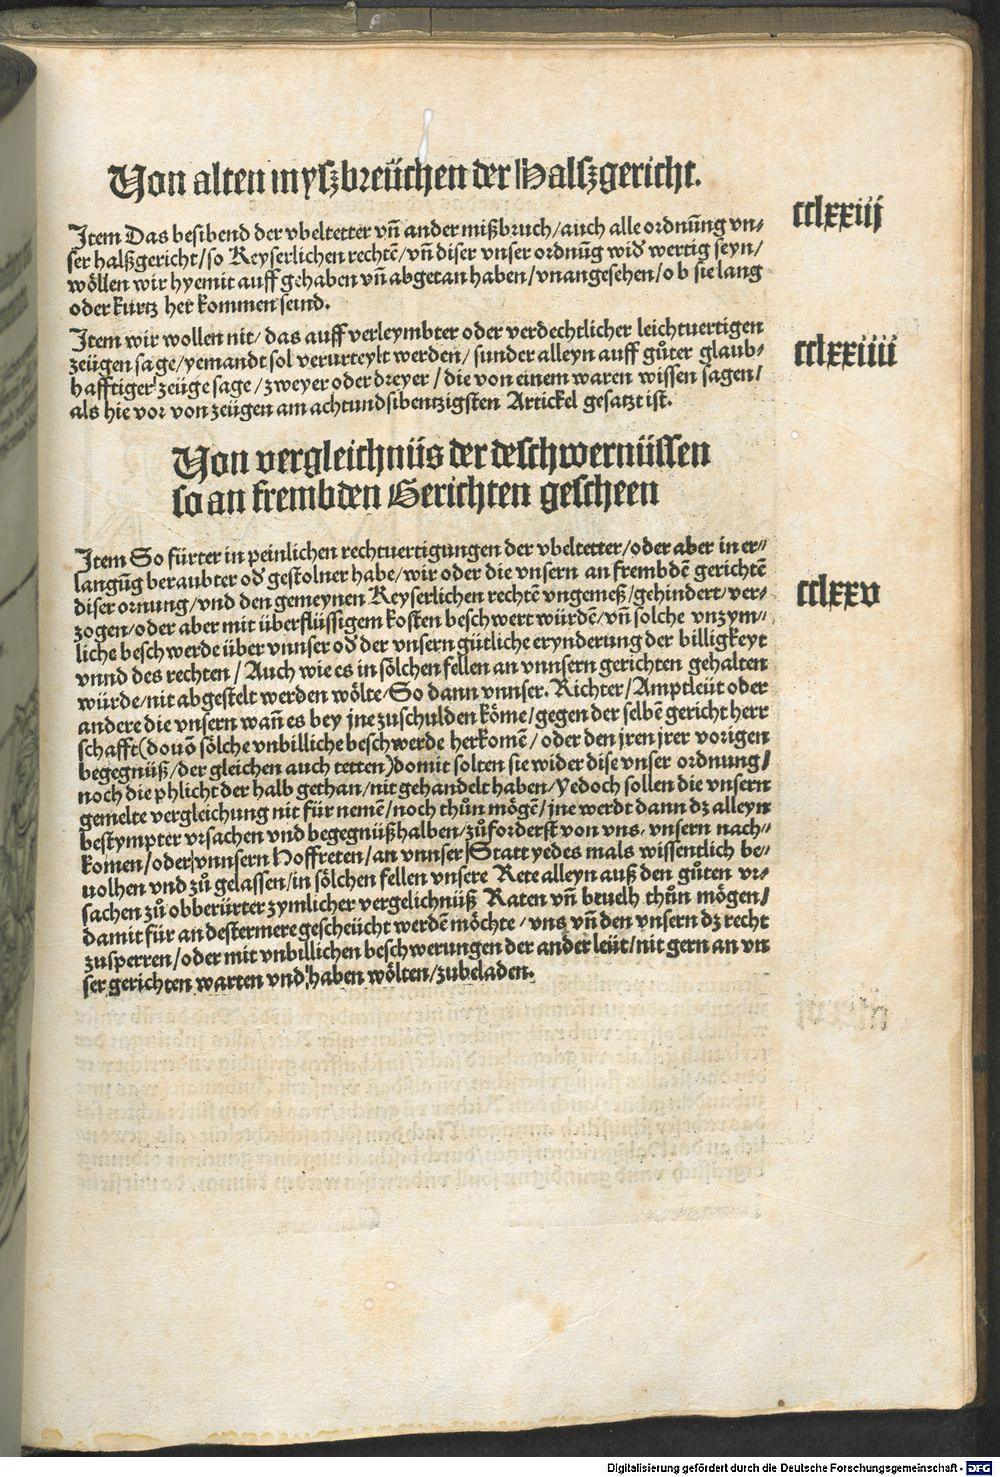 Von alten myszbreüchen der Halszgericht.
cclxxiij
Item Das besibend der vbeltetter vñ ander mißbruch/auch alle ordnũng vn-
ser halßgericht/so Keyserlichen rechtẽ/vñ diser vnser ordnũg wid wertig seyn/
wöllen wir hyemit auff gehaben vñ abgetan haben/vnangesehen/ob sie lang
oder kurtz her kommen seind.
Item wir wollen nit/das auff verleymbter oder verdechtlicher leichtuertigen
cclxxiiij
zeügen sage/yemandt sol verurteylt werden/sunder alleyn auff gůter glaub-
hafftiger zeüge sage/zweyer oder dreyer/die von einem waren wissen sagen/
als hie vor von zeügen am achtundsibentzigsten Artickel gesatzt ist.
Von vergleichnüs der deschwernüssen
so an frembden Gerichten gescheen
Item So fürter in peinlichen rechtuertigungen der vbeltetter/oder aber in er-
langũg beraubter od gestolner habe/wir oder die vnsern an frembdẽ gerichtẽ
cclxxv
diser ornung/vnd den gemeynen Keyserlichen rechtẽ vngemeß/gehindert/ver-
zogen/oder aber mit überflüssigem kosten beschwert würdẽ/vñ solche vnzym-
liche beschwerde über vnnser od der vnsern gütliche erynderung der billigkeyt
vnnd des rechten/Auch wie es in sölchen fellen an vnnsern gerichten gehalten
würde/nit abgestelt werden wölte/So dann vnnser. Richter/Amptleüt oder
andere die vnsern wañ es bey jne zuschulden köme/gegen der selbẽ gericht herr
schafft(douõ sölche vnbilliche beschwerde herkomẽ/oder den jren jrer vorigen
begegnüß/der gleichen auch tetten)domit solten sie wider dise vnser ordnung/
noch die phlicht der halb gethan/nit gehandelt haben/Yedoch sollen die vnsern
gemelte vergleichung nit für nemẽ/noch thůn mögẽ/jne werdt dann dz alleyn
bestympter vrsachen vnd begegnüßhalben/zůforderst von vns/vnsern nach-
komen/oder vnnsern Hoffreten/an vnnser Statt yedes mals wissentlich be-
uolhen vnd zů gelassen/in sölchen fellen vnsere Rete alleyn auß den gůten vr-
sachen zů obberürter zymlicher vergelichnüß Raten vñ beuelh thůn mögen/
damit für an destermere gescheücht werdẽ möchte/vns vñ den vnsern dz recht
zusperren/oder mit vnbillichen beschwerungen der ander leüt/nit gern an vn
ser gerichten warten vnd haben wölten/zubeladen.
Digitalisierung gefördert durch die Deutsche Forschungsgemeinschaft - DFG